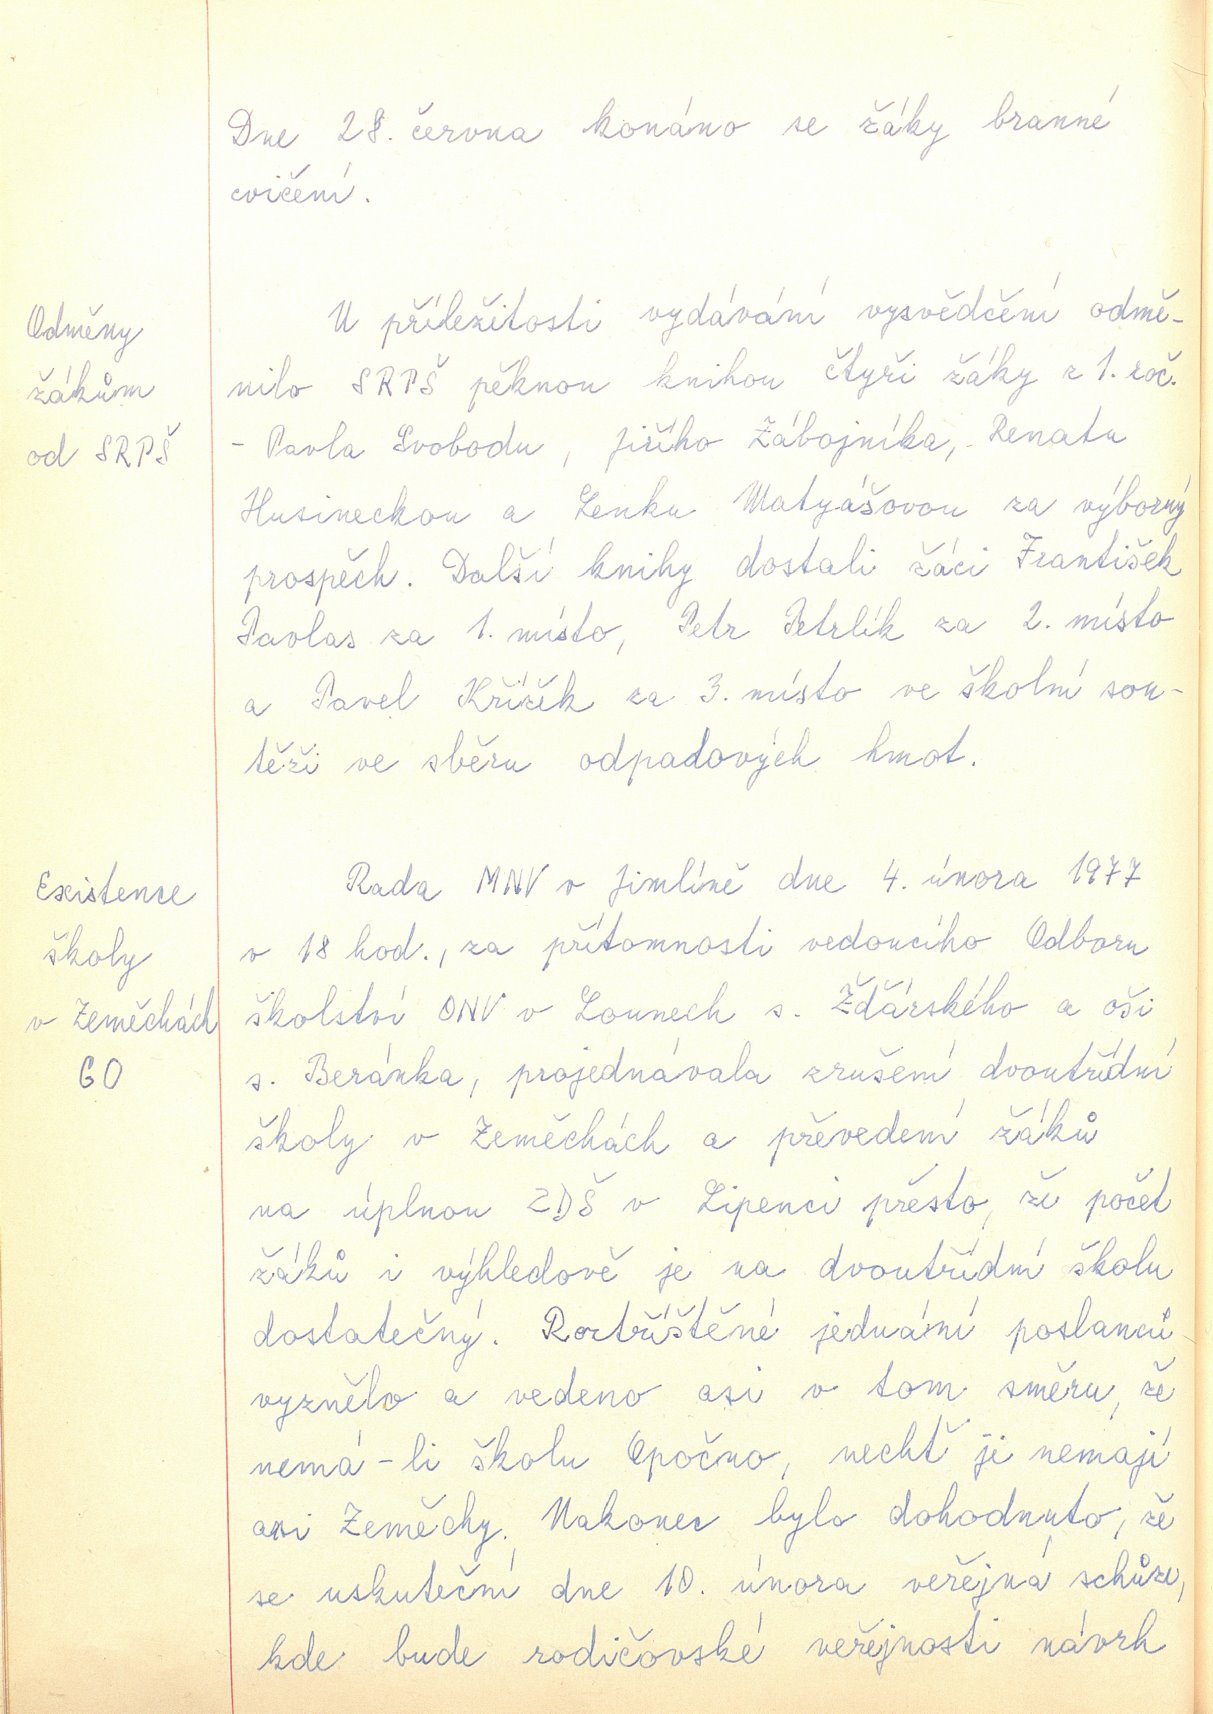 Dne 28. června konáno se žáky branné
cvičení.
Odměny
žákům
od SRPŠ
U příležitosti vydávání vysvědčení odmě-
nilo SRPŠ pěknou knihou čtyři žáky z 1. roč.
- Pavla Svobodu, Jiřího Zábojníka, Renatu
Husineckou a Lenku Matyášovou za výborný
prospěch. Další knihy dostali žáci František
Pavlas za 1. místo, Petr Petrlík za 2. místo
a Pavel Křížek za 3. místo ve školní sou-
těži ve sběru odpadových hmot.
Existence
školy
v Zeměchách
60
Rada MNV v Jimlíně dne 4. února 1977
v 18 hod., za přítomnosti vedoucího Odboru
školství ONV v Lounech s. Žďárského a oši
s. Beránka, projednávala zrušení dvoutřídní
školy v Zeměchách a převedení žáků
na úplnou ZDŠ v Lipenci přesto, že počet
žáků i výhledově je na dvoutřídní školu
dostatečný. Roztříštěné jednání poslanců
vyznělo a vedeno asi v tom směru, že
nemá-li školu Opočno, nechť ji nemají
ani Zeměchy. Nakonec bylo dohodnuto, že
se uskuteční dne 10. února veřejná schůze,
kde bude rodičovské veřejnosti návrh